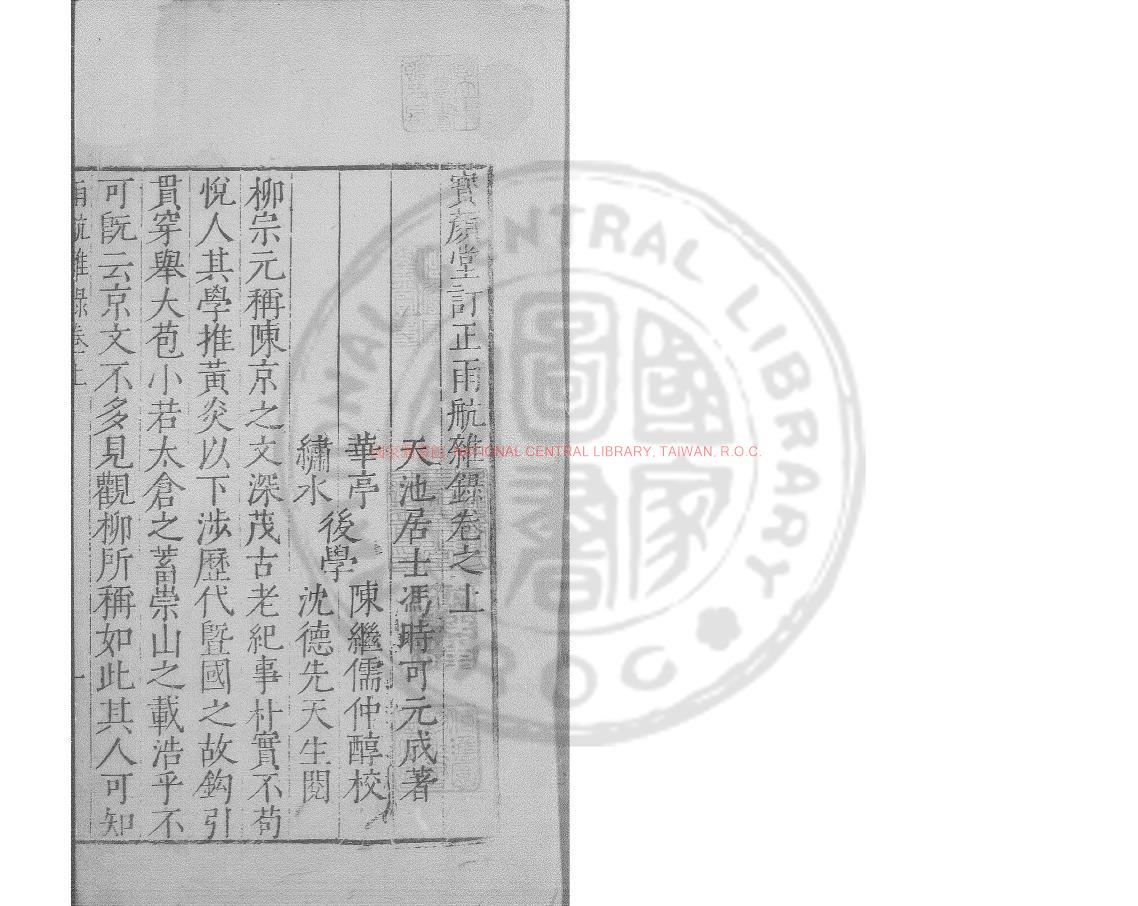 寳顏堂訂正雨航雜錄卷之上
天池居士馮時可元成著
華亭 後學 陳繼儒仲醇校
繡水 沈德先天生閱
柳宗元稱陳京之文深茂古老紀事朴實不苟
悅人其學推黃炎以下涉歷代曁國之故鈎引
貫穿舉大苞小若太倉之蓄崇山之載浩乎不
可旣云京文不多見觀柳所稱如此其人可知
雨航雜錄卷上 一
NATIONAL CENTRAL LIBRARY, TAIWAN, R.O.C.
NATIONAL CENTRAL LIBRARY
R O C
國家圖書館